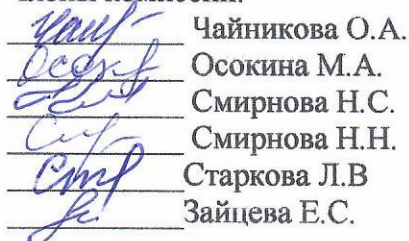 Чайникова О.А.
Осокина М.А.
Смирнова Н.С.
Смирнова Н.Н.
Старкова Л.В
Зайцева Е.С.